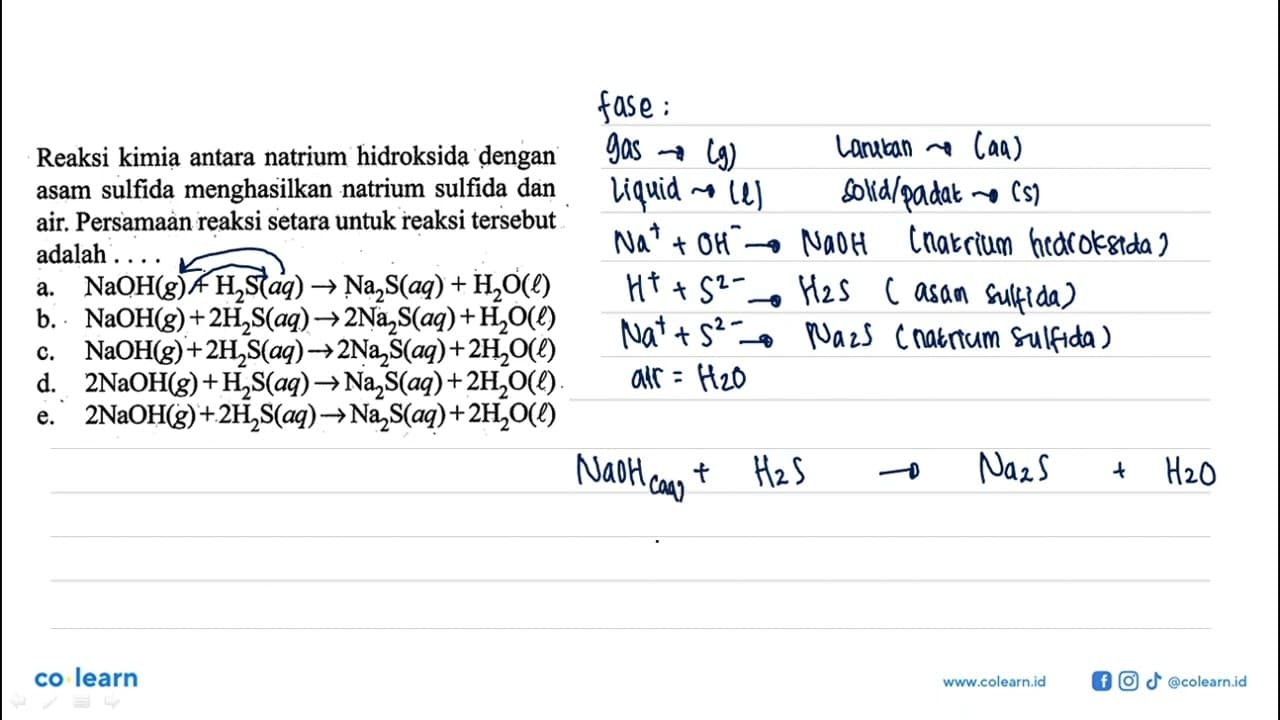 Reaksi kimia antara natrium hidroksida dengan
asam sulfida menghasilkan natrium sulfida dan
air. Persamaan reaksi setara untuk reaksi tersebut
adalah . . . .
a. NaOH(g) + H₂S(aq) → Na₂S(aq) + H₂O(ℓ)
b. NaOH(g) + 2H₂S(aq) → 2Na₂S(aq) + H₂O(ℓ)
c. NaOH(g) + 2H₂S(aq) → 2Na₂S(aq) + 2H₂O(ℓ)
d. 2NaOH(g) + H₂S(aq) → Na₂S(aq) + 2H₂O(ℓ)
e. 2NaOH(g) + 2H₂S(aq) → Na₂S(aq) + 2H₂O(ℓ)
fase :
gas → (g) Larutan → (aq)
Liquid → (l) Solid/padat → (s)
Na⁺ + OH⁻ → NaOH (natrium hidroksida)
H⁺ + S²⁻ → H₂S (asam sulfida)
Na⁺ + S²⁻ → Na₂S (natrium sulfida)
air = H₂O
NaOH (aq) + H₂S → Na₂S + H₂O
co learn
www.colearn.id
@colearn.id